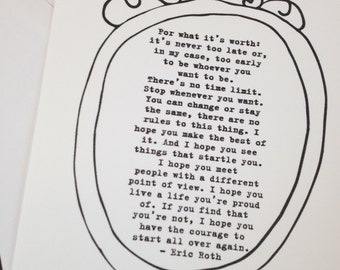 For what it's worth:
it's never too late or,
in my case, too early
to be whoever you
want to be.
There's no time limit.
Stop whenever you want.
You can change or stay
the same, there are no
rules to this thing. I
hope you make the best of
it. And I hope you see
things that startle you.
I hope you meet
people with a different
point of view. I hope you
live a life you're proud
of. If you find that
you're not, I hope you
have the courage to
start all over again.
- Eric Roth